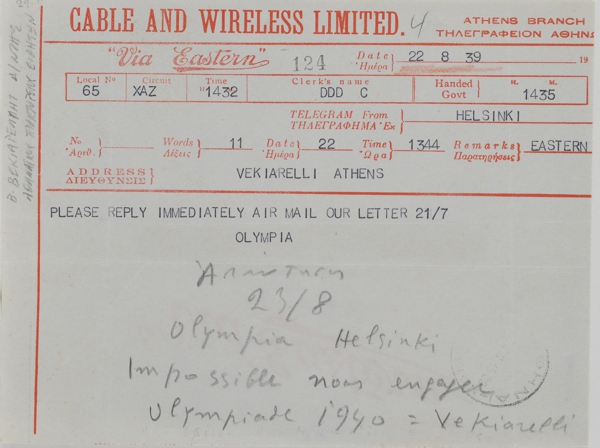 CABLE AND WIRELESS LIMITED. 4
ATHENS BRANCH
ΤΗΛΕΓΡΑΦΕΙΟΝ ΑΘΗΝΩ
"Via Eastern"
124
Date
Ἡμέρα
22 8 39
19
Local No
Circuit
Time
Clerk's name
Handed
Govt
H. M.
65
XAZ
"1432
DDD C
1435
TELEGRAM From
ΤΗΛΕΓΡΑΦΗΜΑ Ἐκ
HELSINKI
No
Ἀριθ.
Words
Λέξεις
11
Date
Ἡμέρα
22
Time
Ὥρα
1344
Remarks
Παρατηρήσεις
EASTERN
ADDRESS
ΔΙΕΥΘΥΝΣΙΣ
VEKIARELLI ATHENS
PLEASE REPLY IMMEDIATELY AIR MAIL OUR LETTER 21/7
OLYMPIA
23/8
Olympia Helsinki
Impossible nous engager
Olympiade 1940 = Vekiarelli